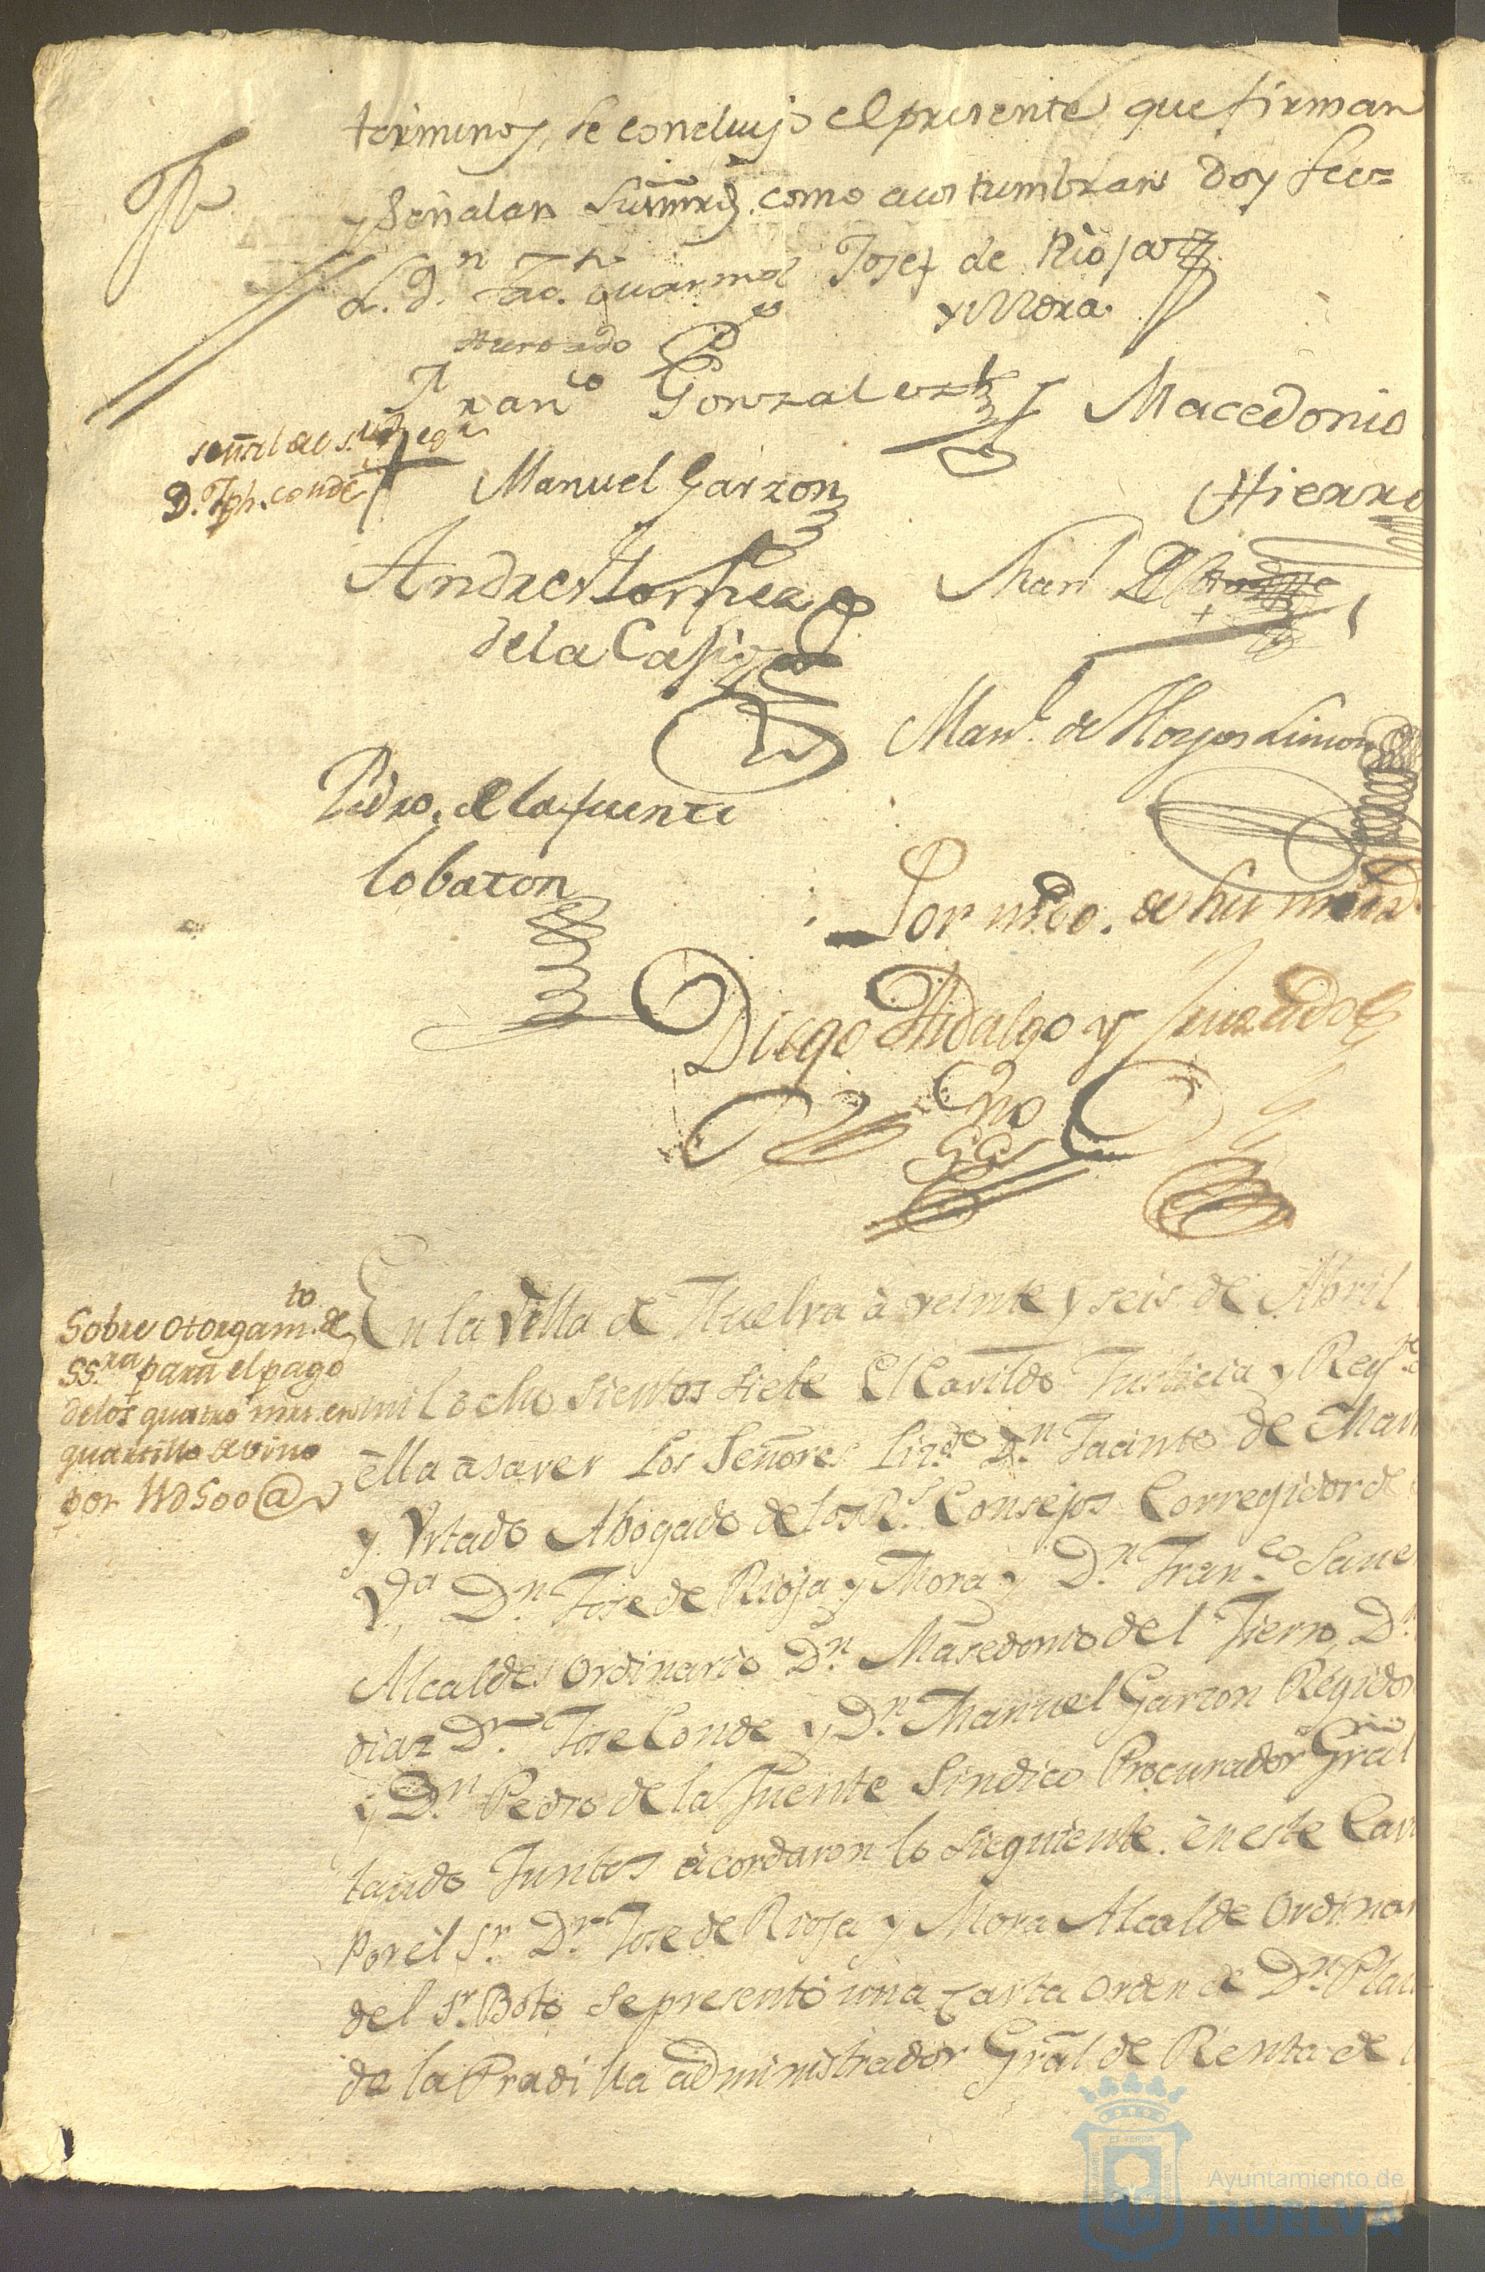 terminos, se concluyo el presente que firman
y señalan sus mrds. como acostumbran doy fee=
L. d.n Jac.to Marmol
Hurtado
Josef de Rioja
y Mora
Fran.co Gonzalez
Macedonio
Hierro
señal del s.r reg.r
D. Jph. Conde
Manuel Garzon
Andres
de la
Man.l
Man.l de Hoyos Limon
Pedro de la fuente
lobaton
Por mdo. de sus mrds
Diego Hidalgo y Jurado
Sno
Sobre otorgam.to de
SS.ra para el pago
de los quatro mrs. en
quartillo de vino
por 11D500@
En la Villa de Huelva à veinte y seis de Abril
mil ocho sientos siete El Cavildo Justicia y Reg.to
ella à saver Los Señores Liz.do D.n Jacinto de Mar
y Vrtado Abogado de los R.s Consejos Corregidor de
V.a D.n Jose de Rioja y Mora y D.n Fran.co Sanc
Alcaldes Ordinario D.n Masedonio del Fierro, D.n
diaz D.n Jose Conde y D.n Manuel Garzon Regido
y D.n Pedro de la Fuente Sindico Procurador Gral
tando Juntos acordaron lo sieguiente. en este Cav
Por el S.r D.n Jose de Rioja y Mora Alcalde Ordinar
del S.r Boto se presentó una Carta orden de D.n Pla
de la Pradilla administrador Gral de Renta de
Ayuntamiento de
HUELVA